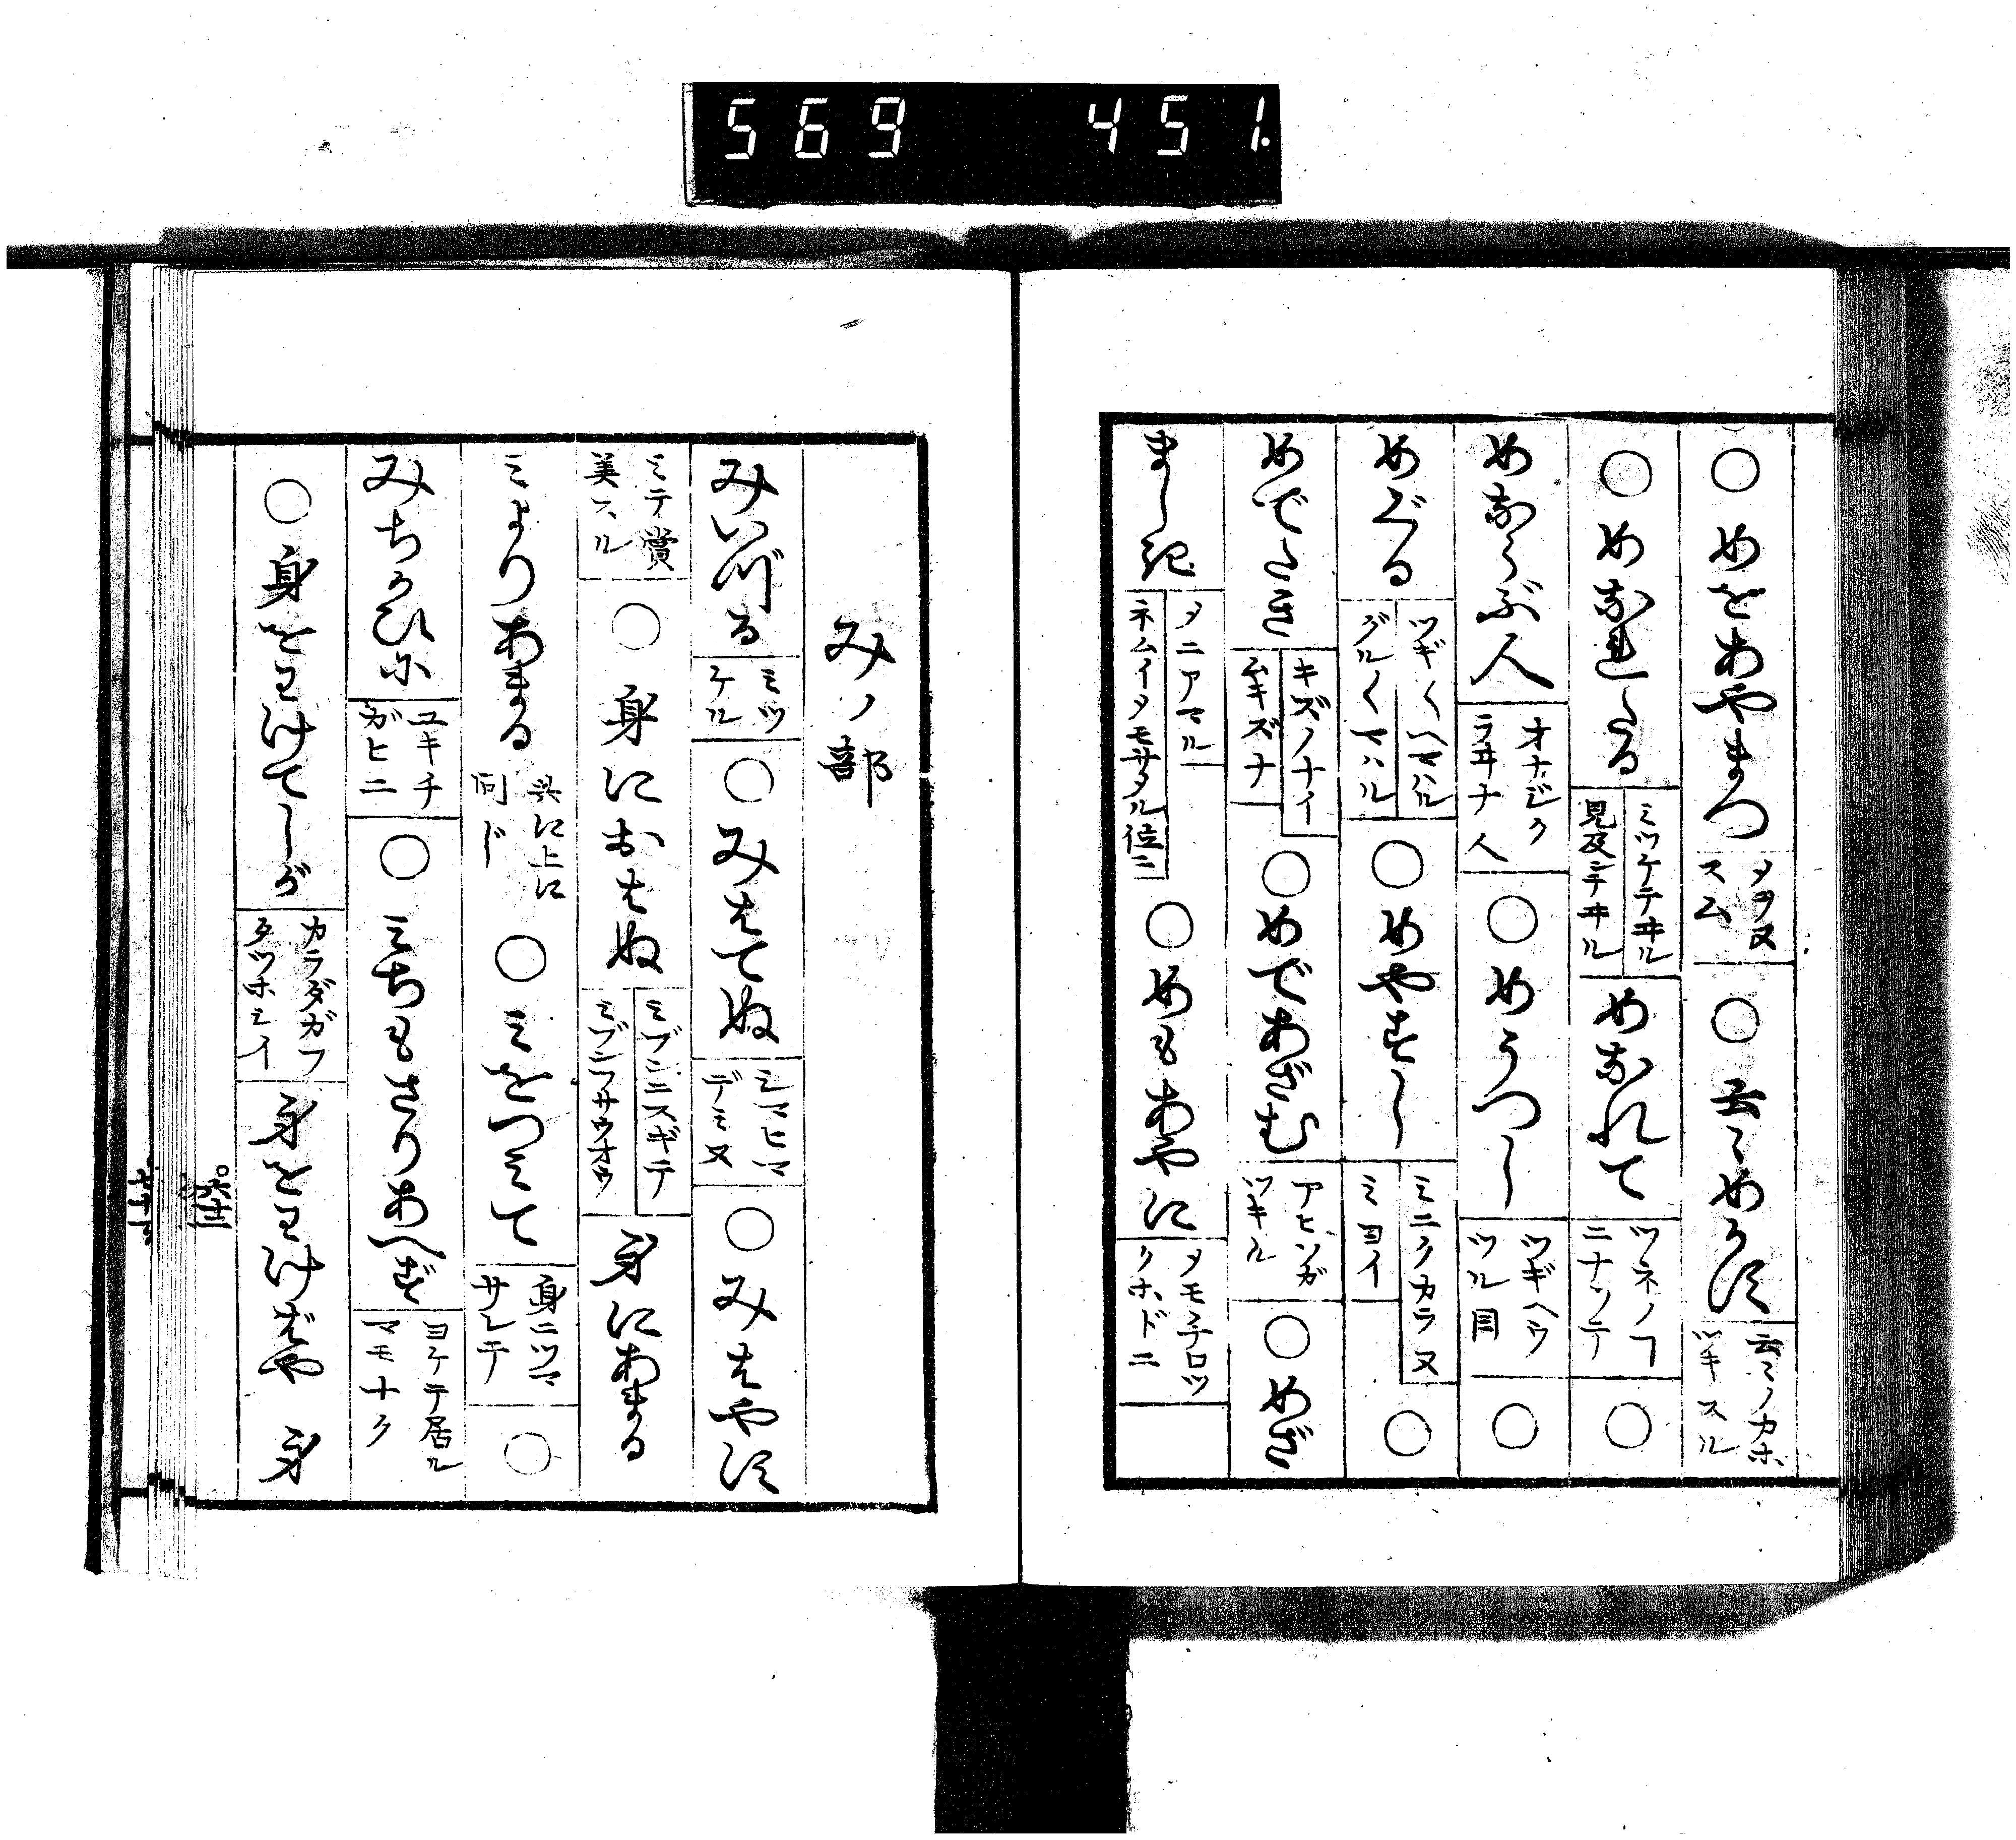 569 451.
○めをあやまつ メヲヌスム ○雲ゝめかす 雲ミノカホツキスル
○めなれたる ミツケテヰル 見及ンテヰル めなれて ツネノコニナツテ ○
めならぶ人 オナジクラヰナ人 ○めうつし ツギヘウツル目 ○
めぐる ツギ〱ヘマハル グル〱マハル ○めやすし ミニクカラヌ ミヨイ ○
めでたき キズノナイ ムキズナ ○めであざむ ツキル ○めざ
まし記 メニアマル ネムイメモサメル位ニ ○めもあやに メモチロツクホドニ
みノ部
みいづる ミツケル ○みはてぬ シマヒマデミヌ ○みはやす
ミテ賞美スル ○身におはぬ ミブンニスギテ ミブンフサウオウ 身にあまる
ミよりあまる 共に上に同じ ○ミをつミて 身ニツマサレテ ○
みちかひに ユキチガヒニ ○ミちもさりあへず ヨケテ居ルマモナク
○身をわけてしが カラダガフタツホシイ 身をわけばや 身